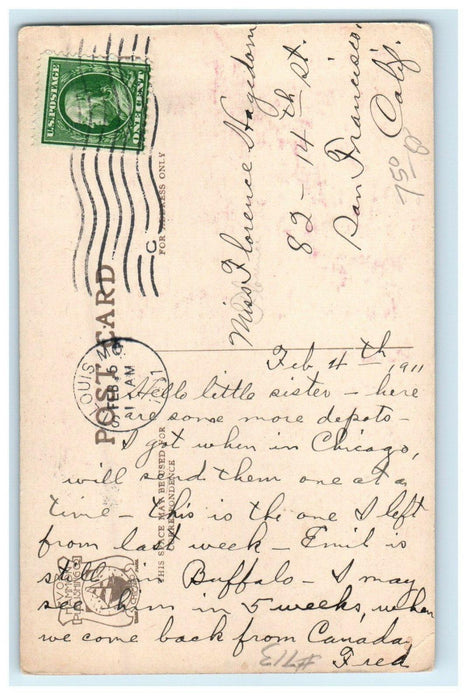 U.S. POSTAGE
ONE CENT
POST CARD
FOR ADDRESS ONLY
THIS SPACE MAY BE USED FOR
CORRESPONDENCE
LOUIS MO
FEB 5
11 AM
1911
C
Miss Florence Hagedorn
82 - 14th St.
San Francisco,
Calif.
750
Feb 4th, '11
Hello little sister - here
are some more depots -
I got when in Chicago,
will send them one at a
time - this is the one I left
from last week - Emil is
still in Buffalo - I may
see him in 5 weeks, when
we come back from Canada,
Fred
#713